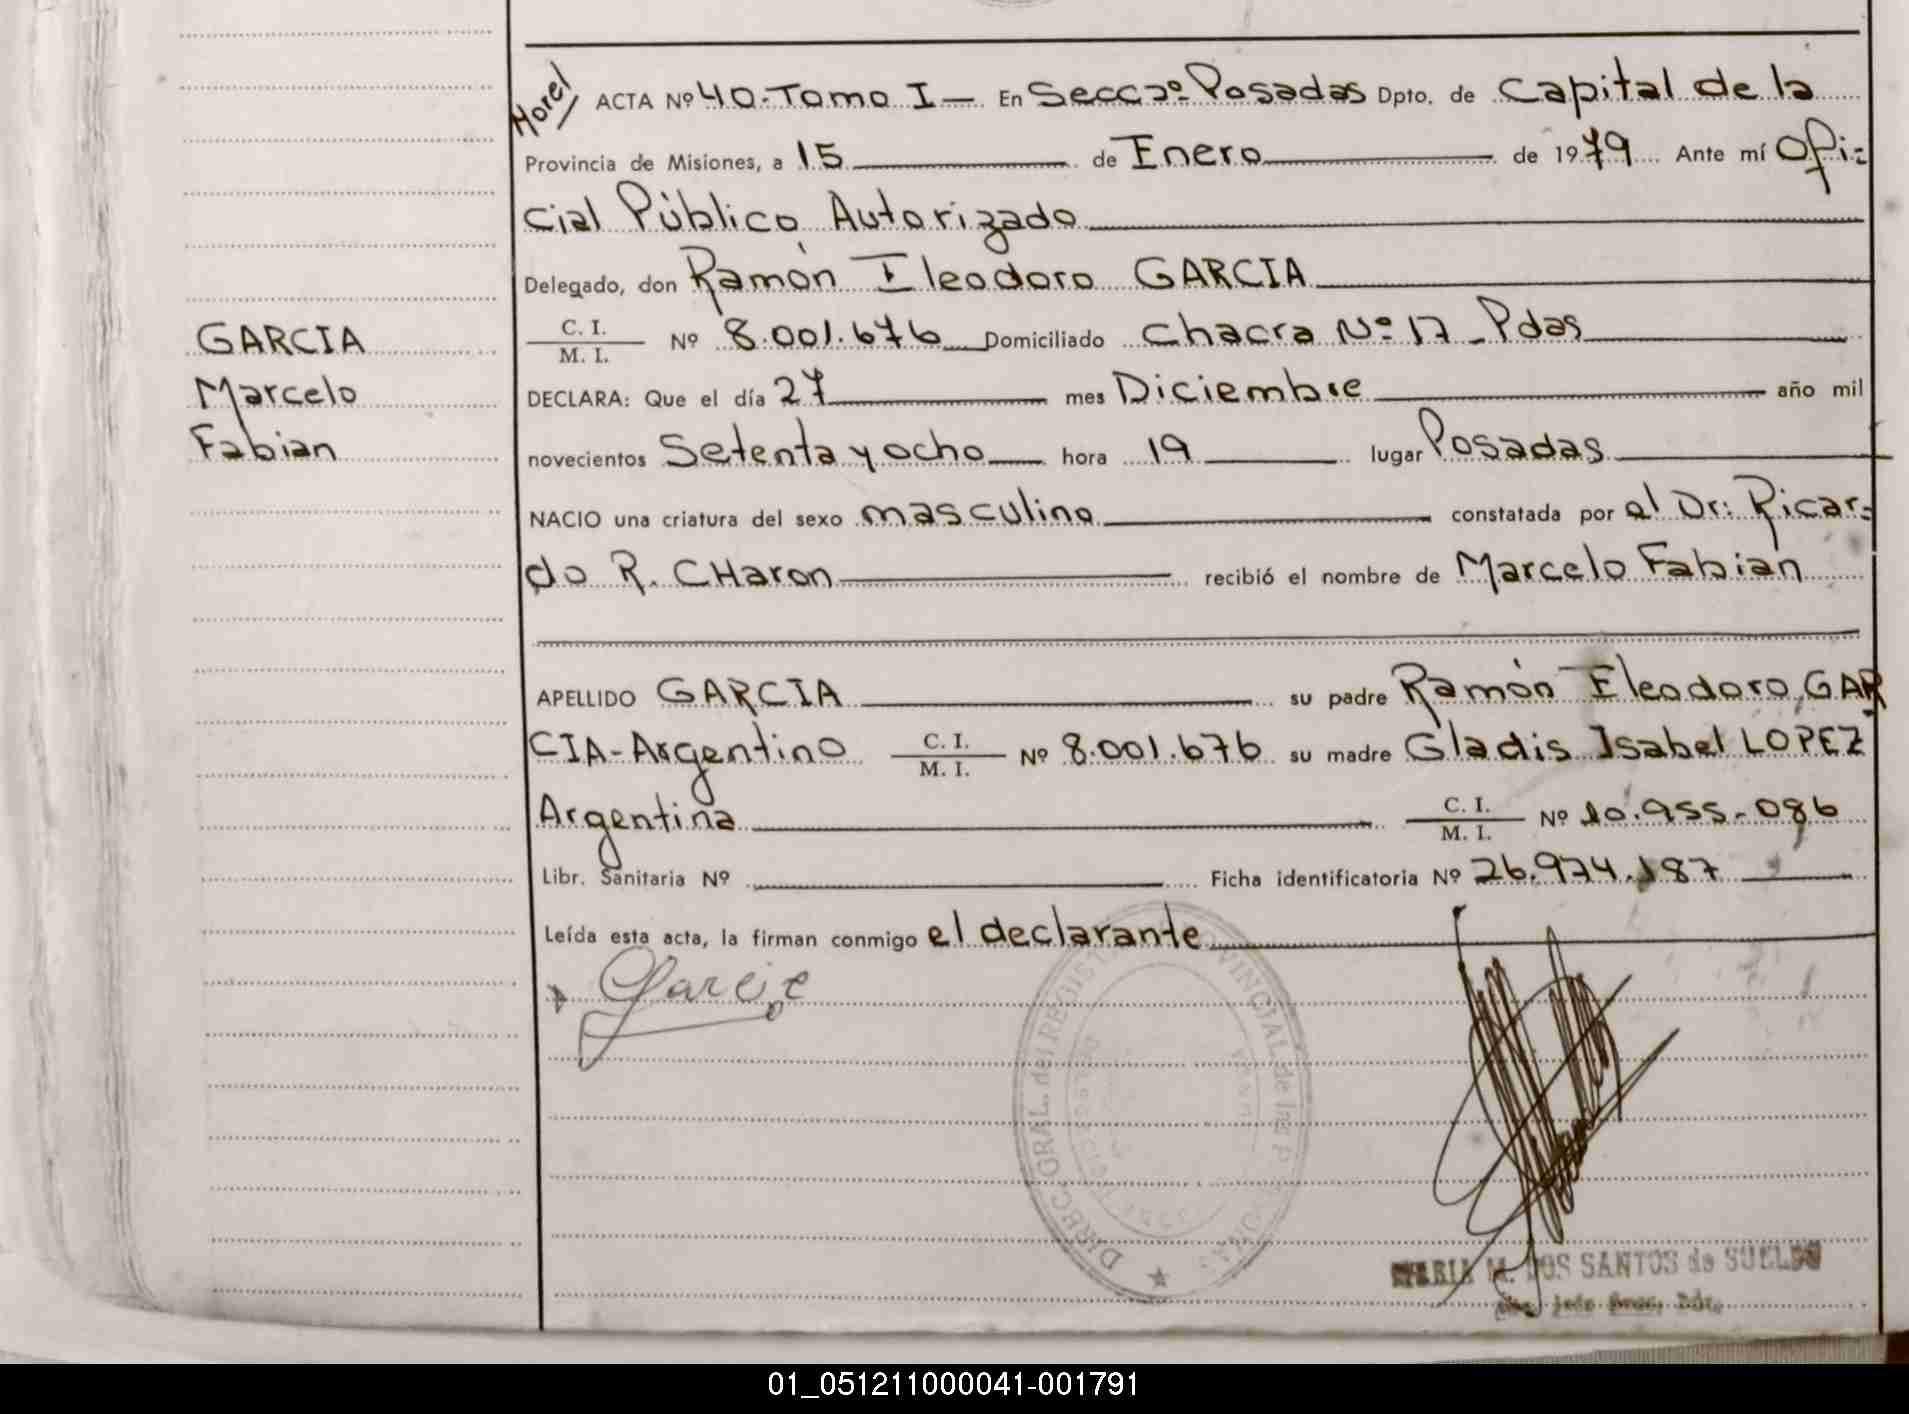 Morel
ACTA Nº 40-Tomo I — En Secc 2º Posadas Dpto. de Capital de la
Provincia de Misiones, a 15 de Enero de 1979 Ante mí Ofi-
cial Público Autorizado
Delegado, don Ramón Eleodoro GARCIA
C. I.
M. I.
Nº 8.001.676 Domiciliado Chacra Nº 17 - Pdas
GARCIA
Marcelo
Fabian
DECLARA: Que el día 27 mes Diciembre año mil
novecientos Setenta y ocho hora 19 lugar Posadas
NACIO una criatura del sexo masculino constatada por el Dr: Ricar-
do R. CHaron recibió el nombre de Marcelo Fabian
APELLIDO GARCIA su padre Ramón Eleodoro GAR
CIA-Argentino C. I. M. I. Nº 8.001.676 su madre Gladis Isabel LOPEZ
Argentina C. I. M. I. Nº 10.955-086
Libr. Sanitaria Nº Ficha identificatoria Nº 26.974.187
Leída esta acta, la firman conmigo el declarante
Garcia
DIREC. GRAL. del REGISTRO PROVINCIAL de las P
MARIA M. DOS SANTOS de SUELDO
01_051211000041-001791